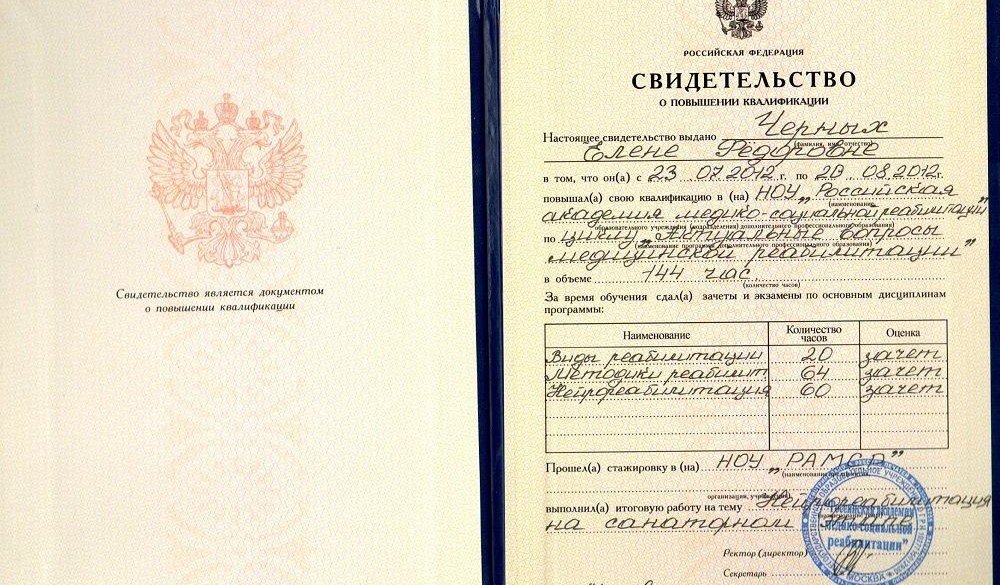 Свидетельство является документом
о повышении квалификации
РОССИЙСКАЯ ФЕДЕРАЦИЯ
СВИДЕТЕЛЬСТВО
О ПОВЫШЕНИИ КВАЛИФИКАЦИИ
Настоящее свидетельство выдано Черных
(фамилия, имя, отчество)
Елене Фёдоровне
в том, что он(а) с 23.07.2012 г. по 20.08.2012г.
повышал(а) свою квалификацию в (на) НОУ „Российская
(наименование
академия медико-социальной реабилитации"
образовательного учреждения (подразделения) дополнительного профессионального образования)
по циклу „Актуальные вопросы
(наименование программы дополнительного профессионального образования)
медицинской реабилитации"
в объеме 144 час.
(количество часов)
За время обучения сдал(а) зачеты и экзамены по основным дисциплинам
программы:
Наименование Количество часов Оценка
Виды реабилитации 20 зачет
Методики реабилит 64 зачет
Нейрореабилитация 60 зачет
Прошел(а) стажировку в (на) НОУ „РАМСР"
(наименование
организации, учреждения)
выполнил(а) итоговую работу на тему Нейрореабилитация
на санаторном этапе
"Российская академия
медико-социальной
реабилитации"
МОСКВА
Ректор (директор)
Секретарь